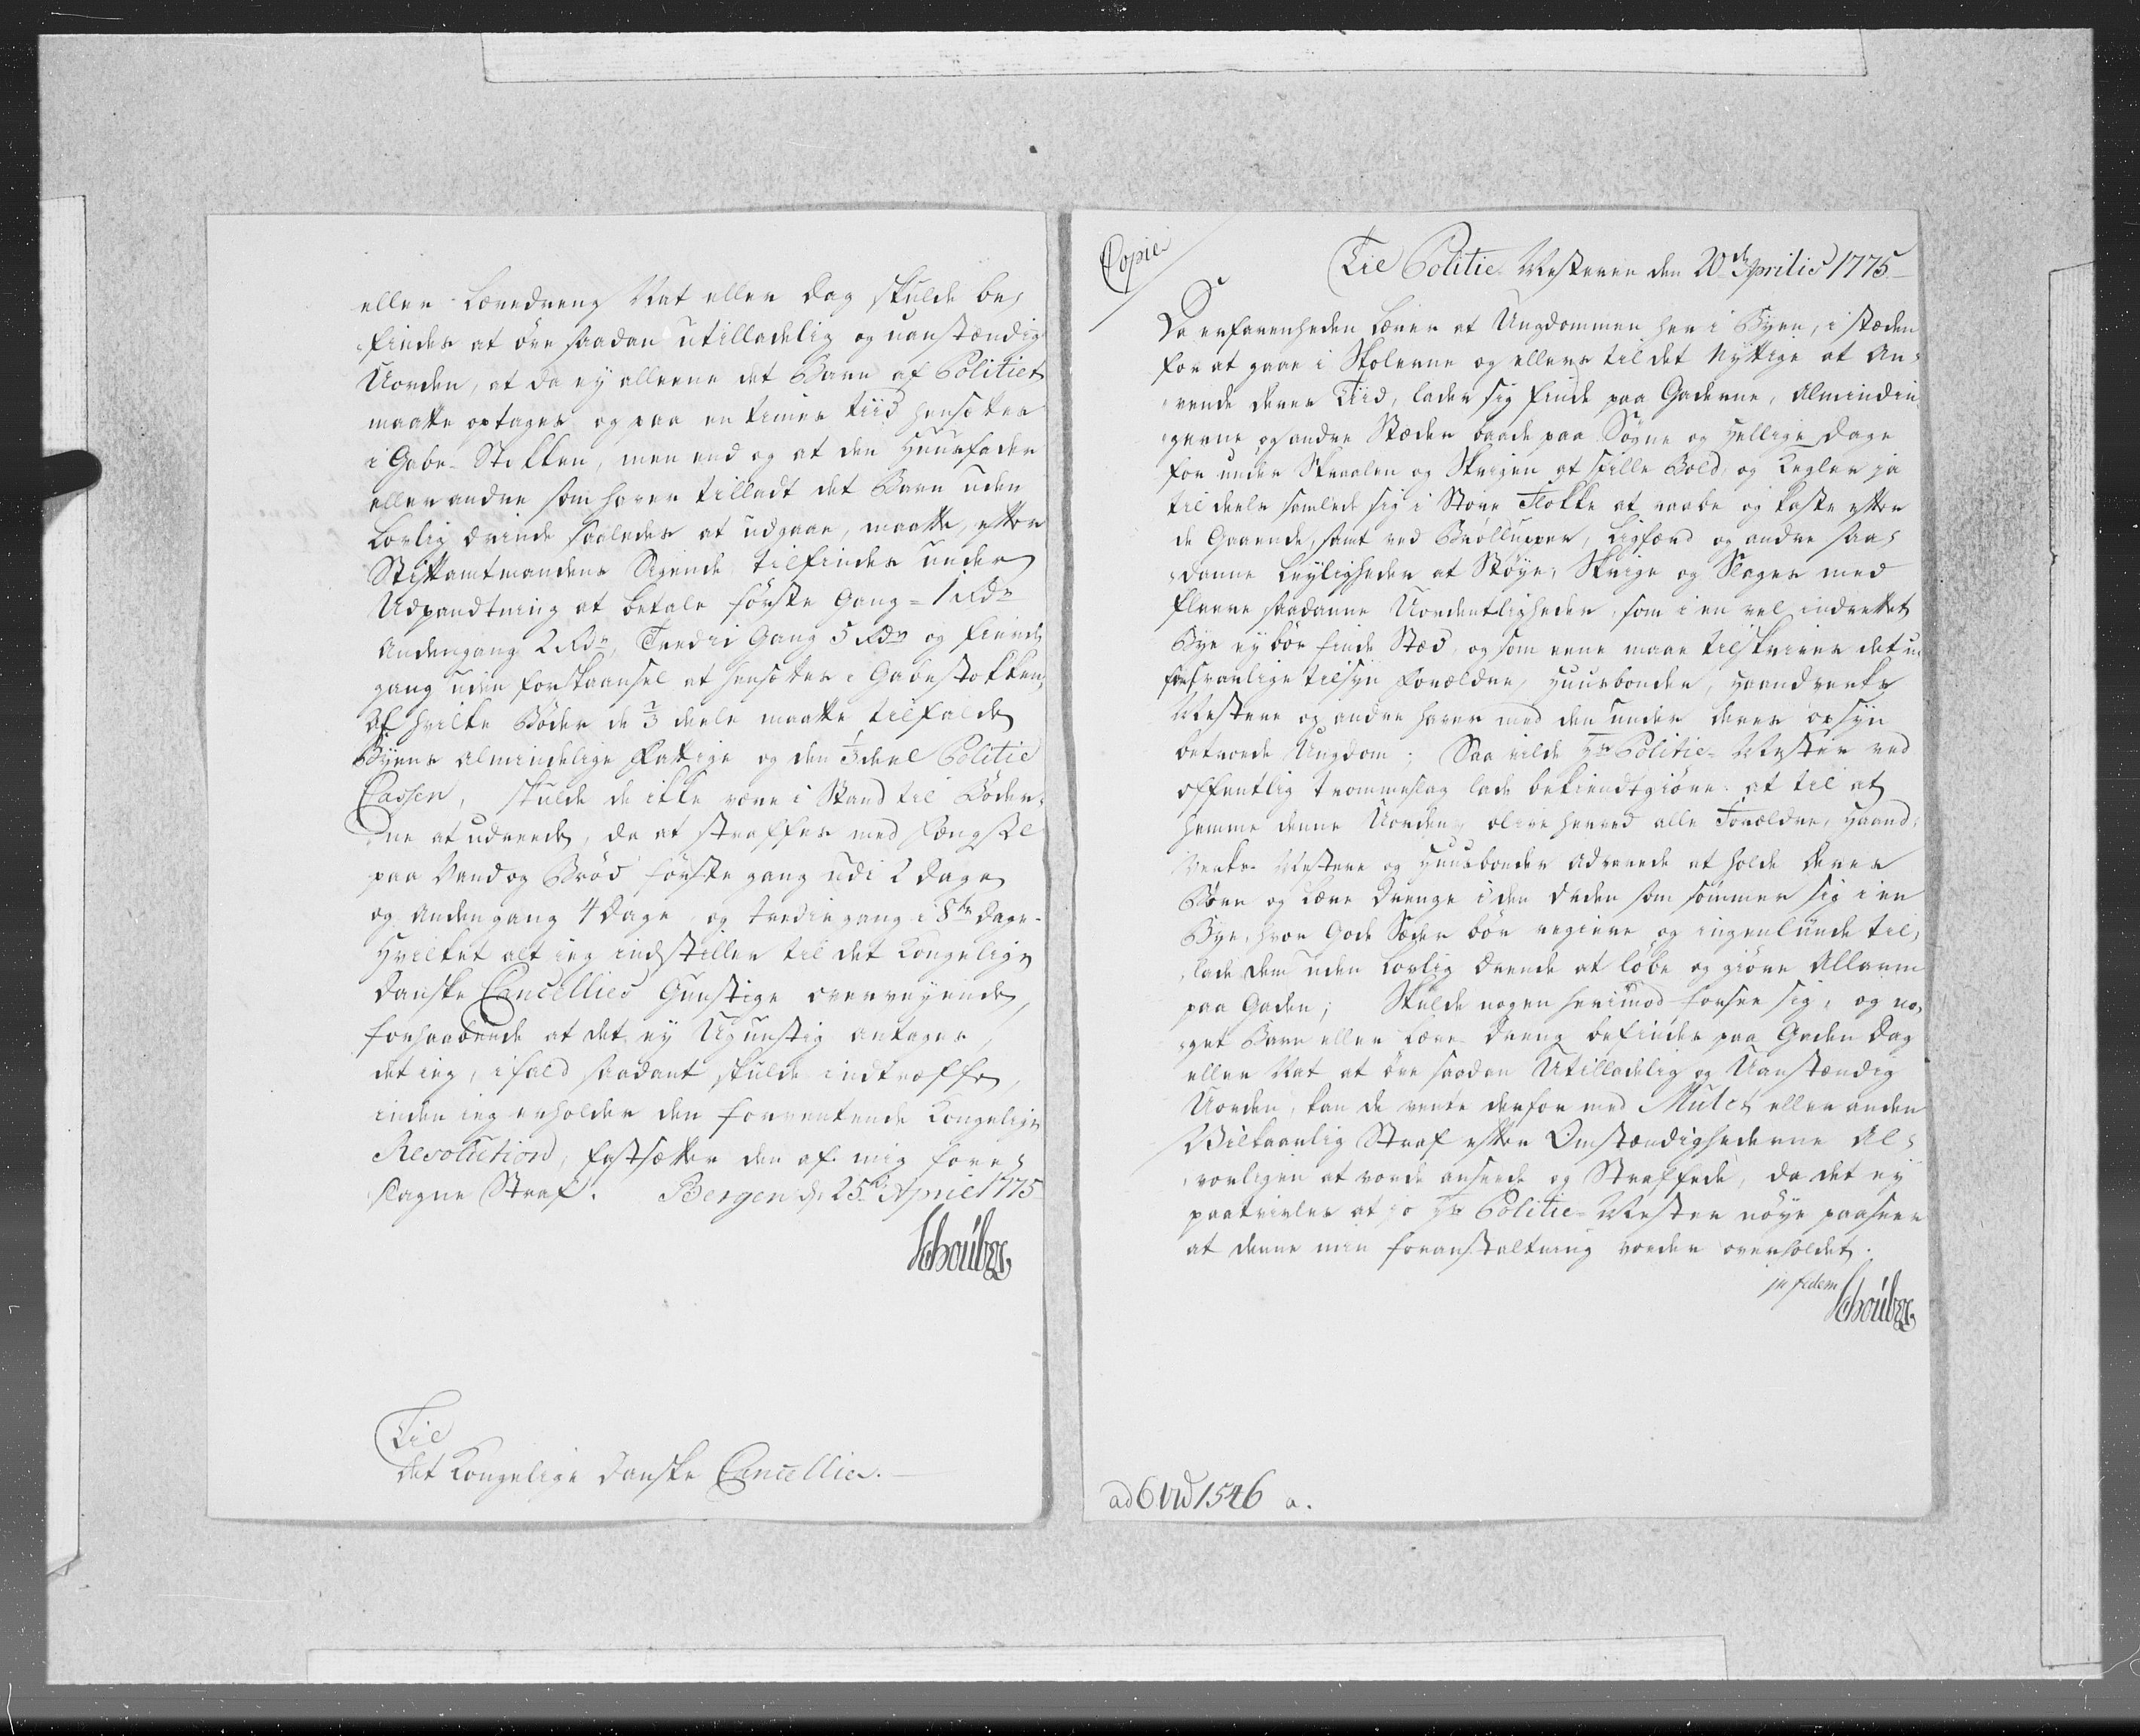 eller Læredreng Nat eller Dag skulde be-
findes at öve saadan utilladelig og uanstændig
Uorden, at da ey alleene det Barn af Politiet
maatte optages og paa en times tiid hensættes
i Gabe-Stokken, men end og at den Huusfader
eller andre som haver tilladt det Barn uden
Lovlig Ærinde saaledes at udgaae, maatte, efter
Stiftamtmandens Sigende tilfindes under
Udpandtning at betale förste Gang = 1 Rdr
Andengang 2 Rdr, Tredie Gang 3 Rdr og fierde
gang uden forskaansel at hensættes i Gabestokken,
Af hvilke Böder de 2/3 deele maatte tilfalde
Byens almindelige Fattige og den 1/3 deel Politie
Cassen, skulde de ikke være i Stand til Böder-
ne at udreede, da at straffes med Fængsel
paa Vand og Bröd förste gang udi 2 Dage
og Anden gang 4 Dage og tredie gang i 8te Dage.
Hvilket alt ieg indstiller til det Kongelige
Danske Cancellies Gunstige overveyende,
forhaabende at det ey Ugunstig antages,
det ieg, ifald saadant skulde indtræffe,
inden ieg erholder den forventende Kongelige
Resolution, fastsætter den af mig fore-
slagne Straf. Bergen d. 25de April 1775
Schouboe
Til
det Kongelige Danske Cancellie.
Copie
Til Politie Mesteren den 20de Aprilis 1775
Da erfarenheden lærer at Ungdommen her i Byen, i stæden
for at gaae i Skolerne og ellers til det Nyttige at An-
vende deres Tiid, lader sig finde paa Gaderne, Almindin-
gerne og andre Stæder baade paa Sögne og Hellige Dage
for under Skraalen og Skrigen at spille Bold og Kegler ja
til deels samlede sig i Store Flokke at raabe og kaste efter
de Gaaende, samt ved Bröllupper, Ligfærd og andre saa-
danne Leyligheder at Stöye, Skrige og Slages med
fleere saadanne Uordentligheder, som i en vel indrettet
Bye ey bör finde Stæd, og som eene maae tilskrives det u-
forsvarlige tilsyn Forældre, Huusbonder, Haandverks
Mestere og andre haver med den under deres opsyn
betroede Ungdom; Saa vilde Hr Politie-Mester ved
offentlig Trommeslag lade bekiendtgiöre: at til at
hemme denne Uorden, blive herved alle Forældre, Haand-
Verks-Mestere og Huusbonder advarede at holde deres
Börn og Lære Drenge i den Orden som sömmer sig i en
Bye, hvor Gode Sæder bör regiere og ingenlunde til-
lade dem uden Lovlig Ærende at löbe og giöre Allarm
paa Gaden; Skulde nogen herimod forsee sig, og no-
get Barn eller Lære Dreng befindes paa Gaden Dag
eller Nat at öve saadan Utilladelig og Uanstændig
Uorden, kan de vente derfor med Mulct eller anden
Vilkaarlig Straf efter Omstændighederne Al-
vorligen at vorde ansete og Straffede, da det ey
paatvivles at jo Hr Politie-Mester nöye paaseer
at denne min foranstaltning vorder overholdet.
in fidem
Schouboe
ad 6 1546 a.